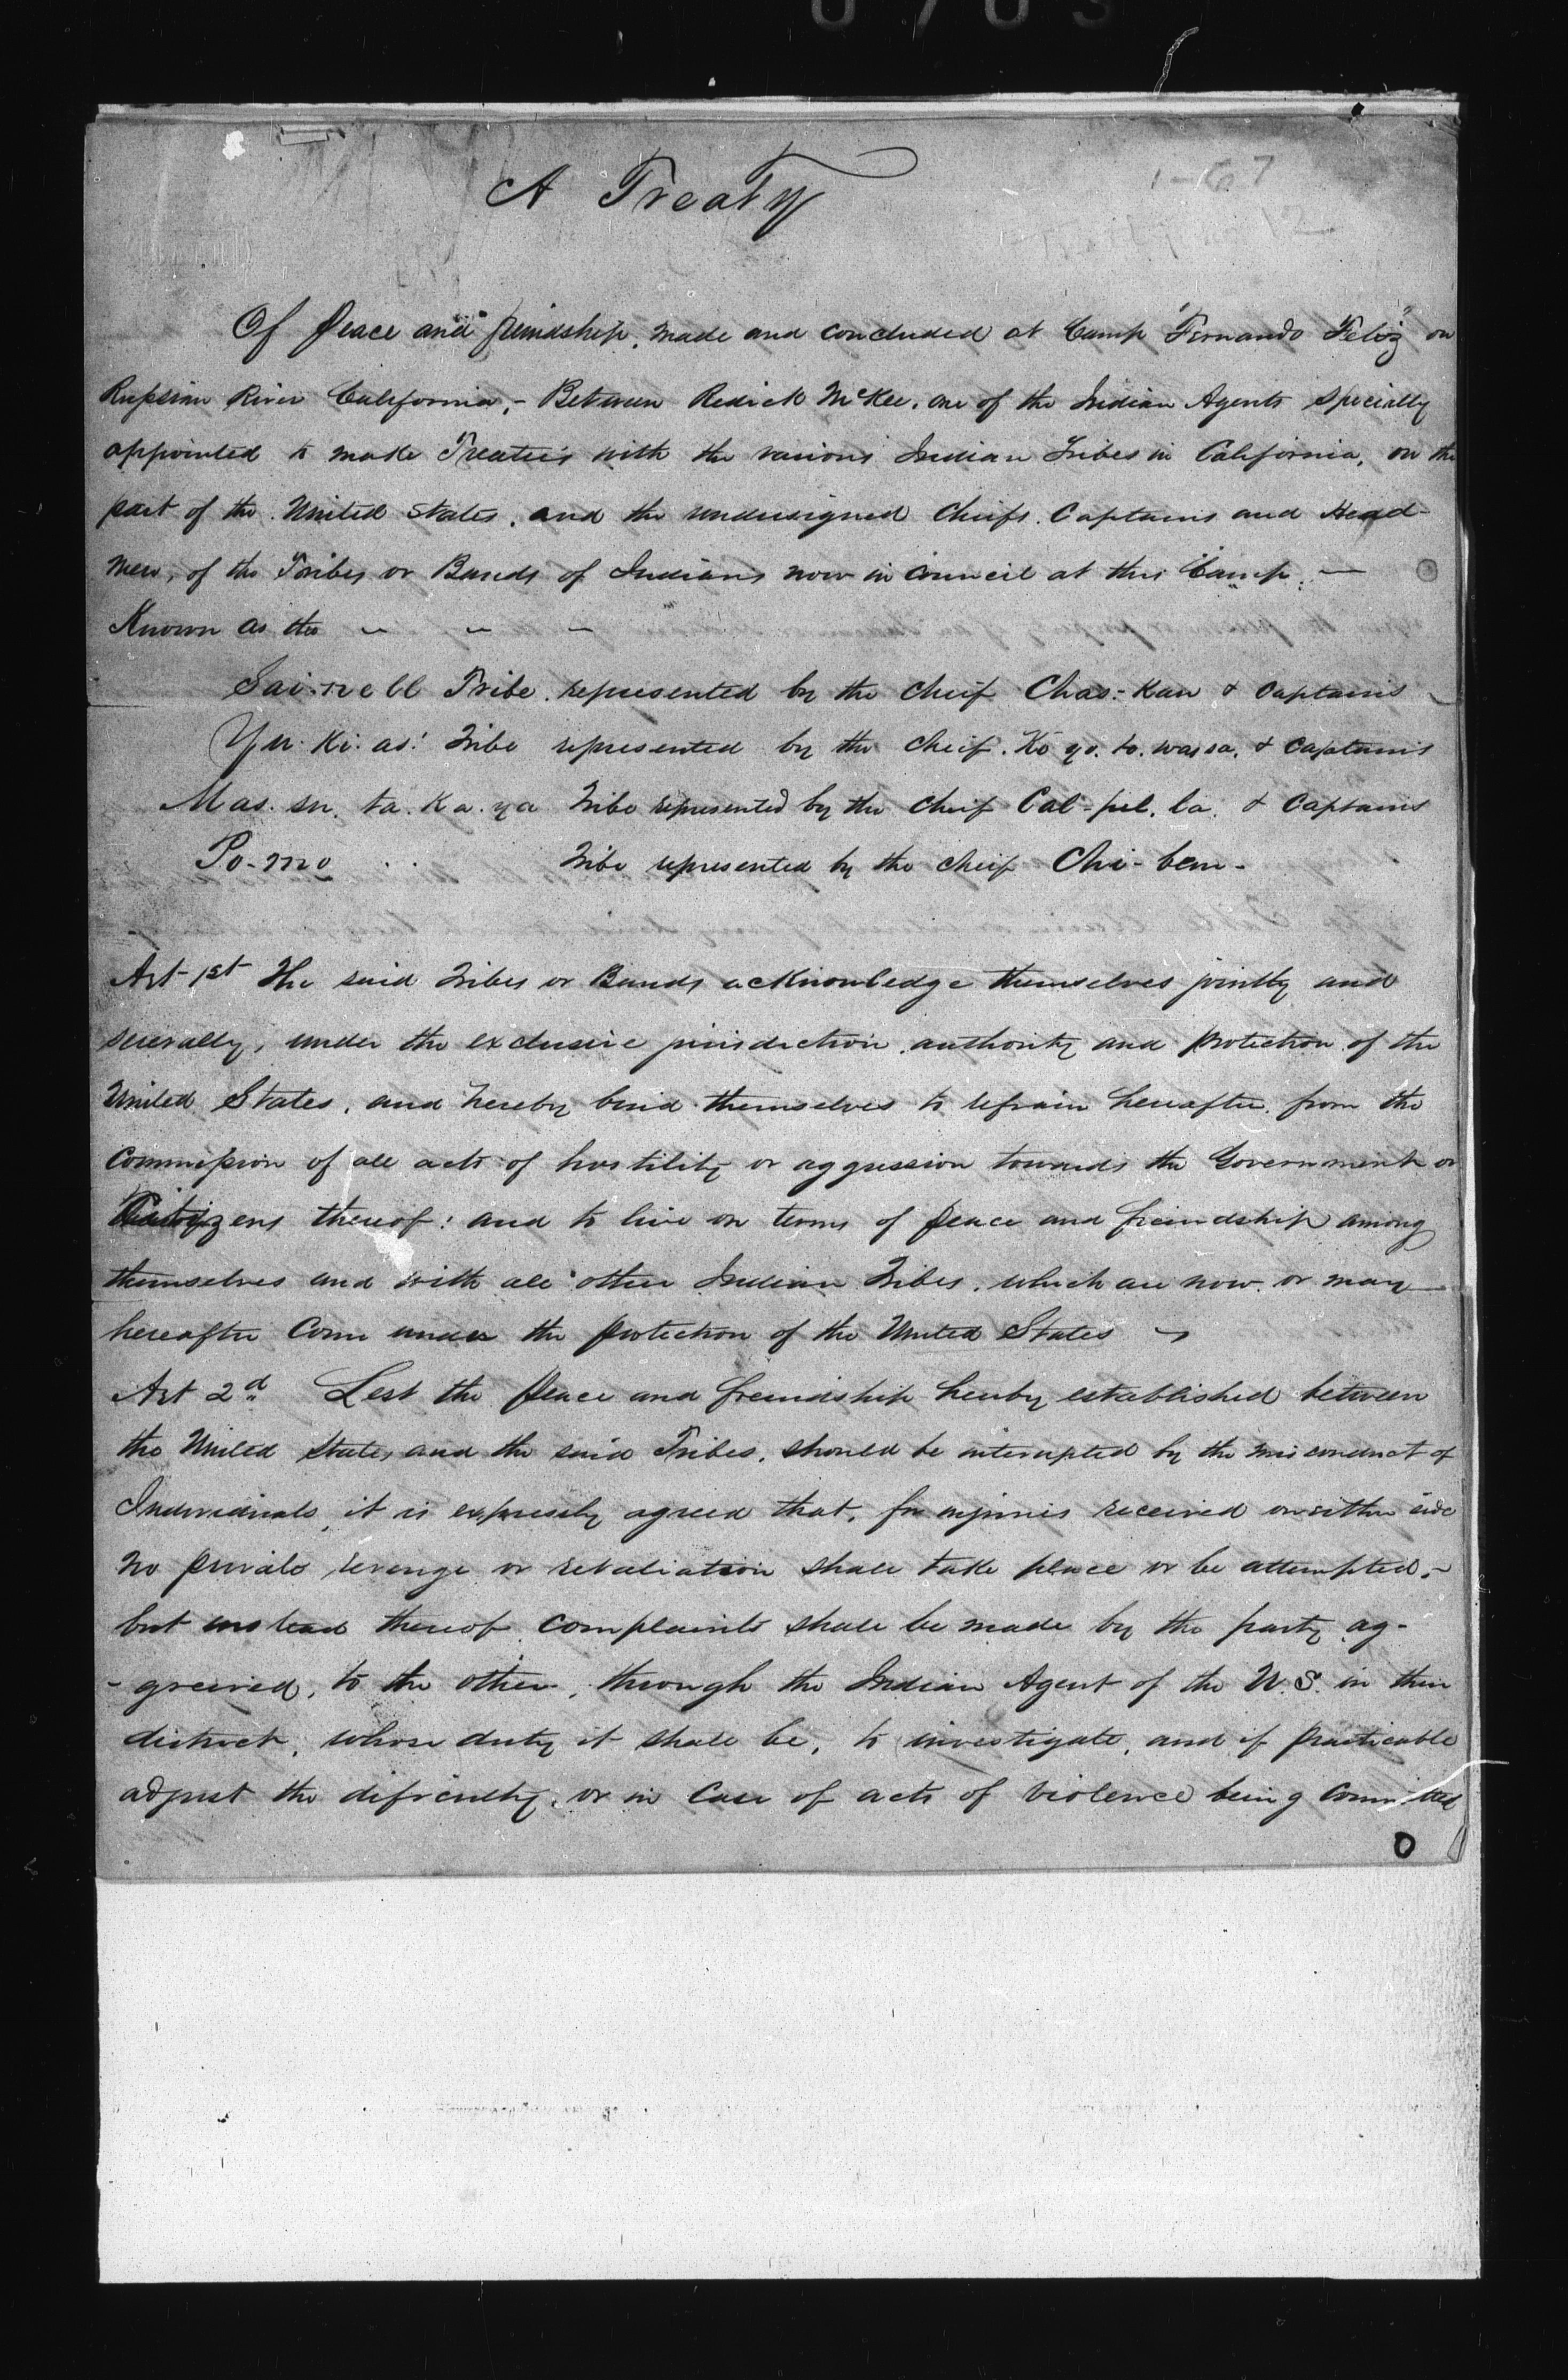 A Treaty
1-67
12
Of Peace and freindship, made and concluded at Camp "Fernando Feliz" on
Russian River California,- Between Redick McKee, one of the Indian Agents specially
appointed to make Treaties with the various Indian Tribes in California, on the
part of the United States, and the undersigned Cheifs, Captains and Head-
men, of the Tribes or Bands of Indians now in Council at this Camp. —
Known as the - - -
Sai-nell Tribe, represented by the Cheif Chas-Kan & Captains
Yu-Ki-as' Tribe represented by the Cheif. Ko. yo. to. wassa. & Captains
Mas. su. ta. Ka. ya Tribe represented by the Cheif Cal-pel. la. & Captains
Po-mo . . Tribe represented by the Cheif Chi-bem-
Art 1st The said Tribes or Bands acknowledge themselves jointly and
severally, under the exclusive jurisdiction, authority and protection of the
United States, and hereby bind themselves to refrain hereafter from the
Commission of all acts of hostility or aggression towards the Government or
Citizens thereof: and to live on terms of peace and freindship among
themselves and with all other Indian Tribes, which are now or may
hereafter come under the protection of the United States
Art 2d Lest the Peace and freindship hereby established between
the United States and the said Tribes, should be interupted by the misconduct of
Individuals, it is expressly agreed that, for injuries received on either side
no private revenge or retaliation shall take place or be attempted,-
but instead thereof complaints shall be made by the party ag-
-greived, to the other, through the Indian Agent of the U.S. in their
district, whose duty it shall be, to investigate, and if practicable
adjust the dificulty, or in case of acts of violence being committed
0